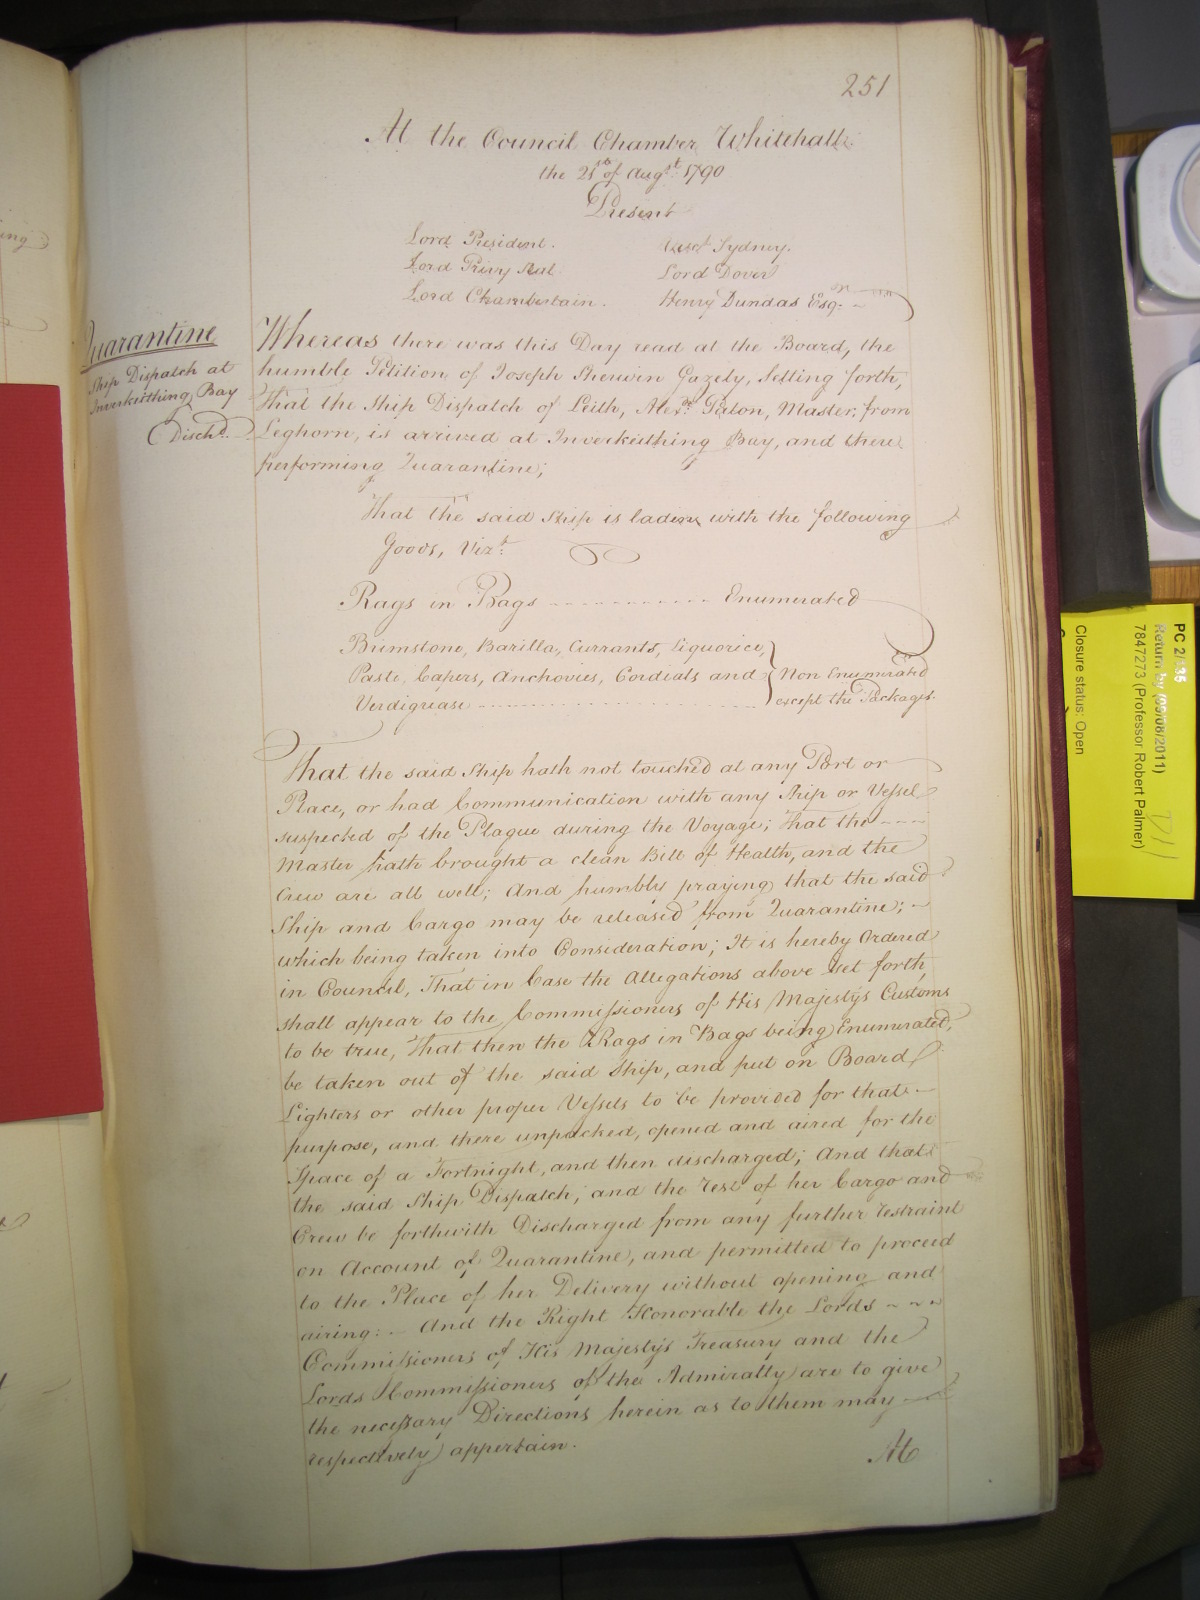 251
At the Council Chamber Whitehall
the 21st of Augst. 1790
Present
Lord President. Visct. Sydney.
Lord Privy Seal. Lord Dover
Lord Chamberlain. Henry Dundas Esqr.
Quarantine
Ship Dispatch at
Inverkeithing Bay
Dischd.
Whereas there was this Day read at the Board, the
humble Petition of Joseph Sherwin Gazely, Setting forth,
That the Ship Dispatch of Leith, Alexr. Paton, Master, from
Leghorn, is arrived at Inverkeithing Bay, and there
performing Quarantine;
That the said Ship is laden with the following
Goods, Vizt.
Rags in Bags - - - - - - - - - - - - Enumerated
Brimstone, Barilla, Currants, Liquorice,
Paste, Capers, Anchovies, Cordials and } Non Enumerated
Verdigrease - - - - - - - - - - - - except the Packages.
That the said Ship hath not touched at any Port or
Place, or had Communication with any Ship or Vessel
suspected of the Plague during the Voyage; That the - - - -
Master hath brought a clean Bill of Health, and the
Crew are all well; And humbly praying that the said
Ship and Cargo may be released from Quarantine; -
which being taken into Consideration; It is hereby Ordered
in Council, That in Case the Allegations above set forth,
shall appear to the Commissioners of His Majestys Customs
to be true, That then the Rags in Bags being Enumerated,
be taken out of the said Ship, and put on Board
Lighters or other proper Vessels to be provided for that -
purpose, and there unpacked, opened and aired for the
Space of a Fortnight, and then discharged; And that
the said Ship Dispatch, and the rest of her Cargo and
Crew be forthwith Discharged from any further restraint
on Account of Quarantine, and permitted to proceed
to the Place of her Delivery without opening and
airing: - And the Right Honorable the Lords - - -
Commissioners of His Majestys Treasury and the
Lords Commissioners of the Admiralty are to give
the necessary Directions herein as to them may
respectively appertain.
At
PC 2/135
Return by (09/08/2011)
7847273 (Professor Robert Palmer)
Closure status: Open